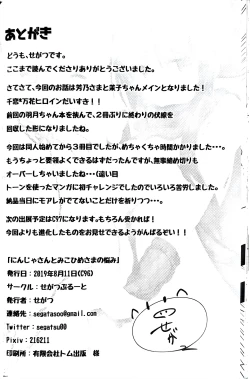 あとがき
どうも、せがつです。
ここまで読んでくださりありがとうございました。
さてさて、今回のお話は芳乃さまと茉子ちゃんメインとなりました！
千恋*万花ヒロインだいすき！！
前回の明月ちゃん本を挟んで、2冊ぶりに終わりの伏線を
回収した形になりましたね。
今回は同人始めてから3冊目でしたが、めちゃくちゃ時間かかりました・・・。
もうちょっと要領よくできるはずだったんですが、無事締め切りも
オーバーしちゃいましたね・・・(遠い目
トーンを使ったマンガに初チャレンジしてたのでいろいろ苦労しました。
納品当日にモアレがでてないことだけを祈りつつ・・・。
次の出展予定はC97になります。もちろん受かれば！
今回よりも進化したものをお見せできるようがんばるぞい！！
「にんじゃさんとみこひめさまの悩み」
発行日：2019年8月11日(C96)
サークル：せがつぷるーと
発行者：せがつ
連絡先：segatasoo@gmail.com
Twitter：segatsu00
Pixiv：216211
印刷所：有限会社トム出版　様